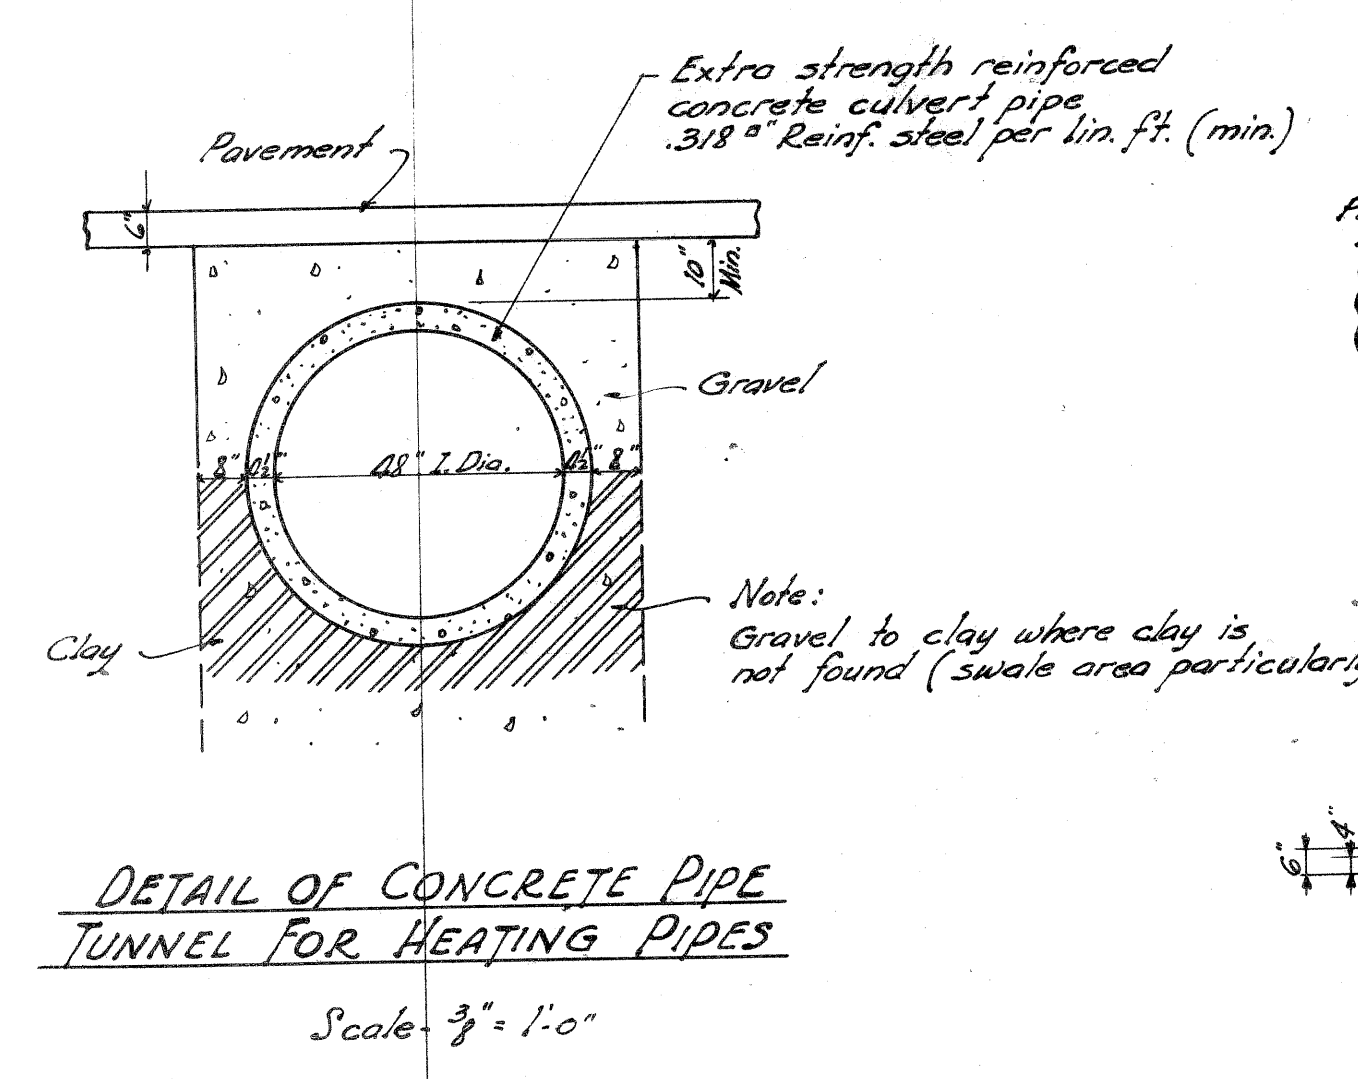 Extra strength reinforced
concrete culvert pipe
.318 □" Reinf. steel per lin. ft. (min.)
Pavement
6"
10"
Min.
Gravel
8" 4½" 48" I. Dia. 4½" 8"
Note:
Gravel to clay where clay is
not found (swale area particularly
Clay
6" 4"
DETAIL OF CONCRETE PIPE
TUNNEL FOR HEATING PIPES
Scale - 3/8" = 1'-0"